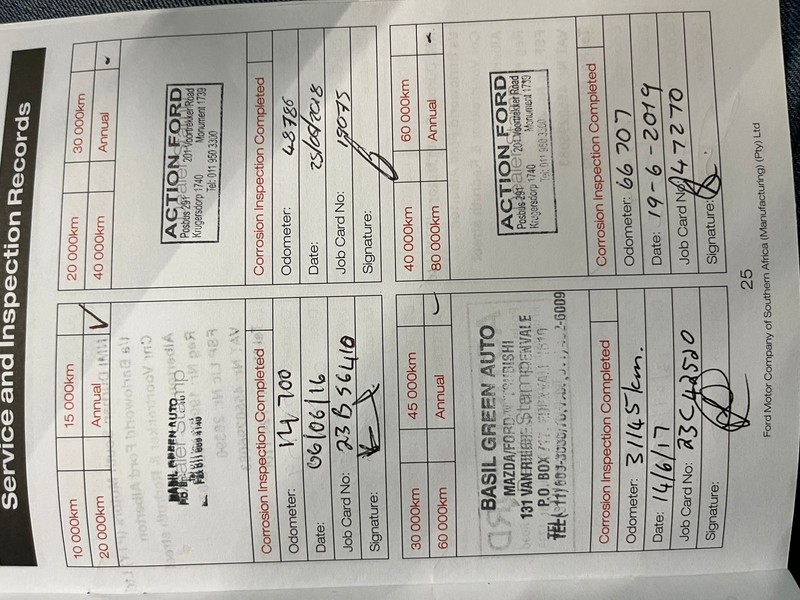 Service and Inspection Records
10 000km 15 000km
20 000km Annual ✓
BASIL GREEN AUTO
Corrosion Inspection Completed
Odometer: 14 700
Date: 06/06/16
Job Card No: 23B56410
Signature:
20 000km 30 000km
40 000km Annual ✓
ACTION FORD
Posbus 291 201 Voortrekker Road
Krugersdorp 1740 Monument 1739
Tel: 011 950 3300
Corrosion Inspection Completed
Odometer: 48786
Date: 25/05/2018
Job Card No: 19075
Signature:
30 000km 45 000km
60 000km Annual ✓
BASIL GREEN AUTO
MAZDA/FORD/MITSUBISHI
131 VAN RIEBEECK
P.O. BOX
TEL
Corrosion Inspection Completed
Odometer: 31145km.
Date: 14/6/17
Job Card No: 23C42520
Signature:
40 000km 60 000km
80 000km Annual ✓
ACTION FORD
Posbus 291 201 Voortrekker Road
Krugersdorp 1740 Monument 1739
Tel: 011 950 3300
Corrosion Inspection Completed
Odometer: 66707
Date: 19-6-2019
Job Card No: 47270
Signature:
25
Ford Motor Company of Southern Africa (Manufacturing) (Pty) Ltd